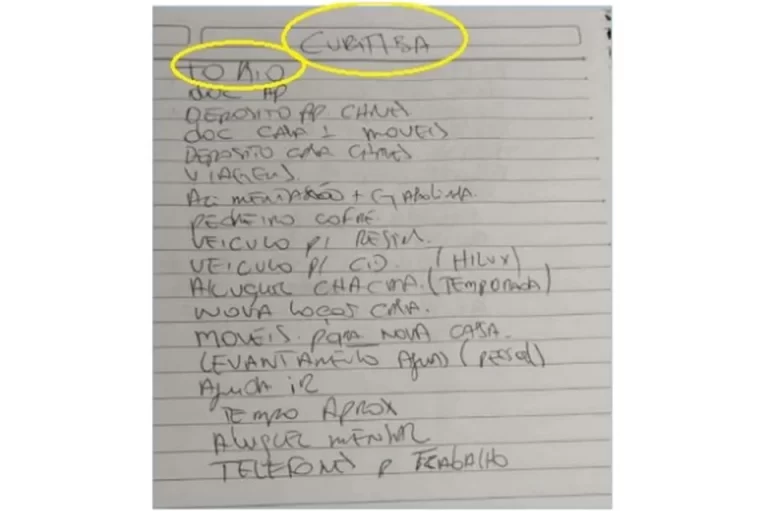 CURITIBA
TOKIO
DOC AP
DEPOSITO AP. CHAVES
DOC CASA 1 MOVEIS
DEPOSITO CASA CHAVES
VIAGENS.
ALIMENTAÇÃO + GASOLINA.
PEDREIRO COFRE.
VEICULO P/
VEICULO P/ (HILUX)
ALUGUEL CHACARA. (TEMPORADA)
NOVA CASA.
MOVEIS. PARA NOVA CASA.
LEVANTAMENTO
AJUDA
TEMPO APROX
ALUGUEL MENSAL
TELEFONES P TRABALHO